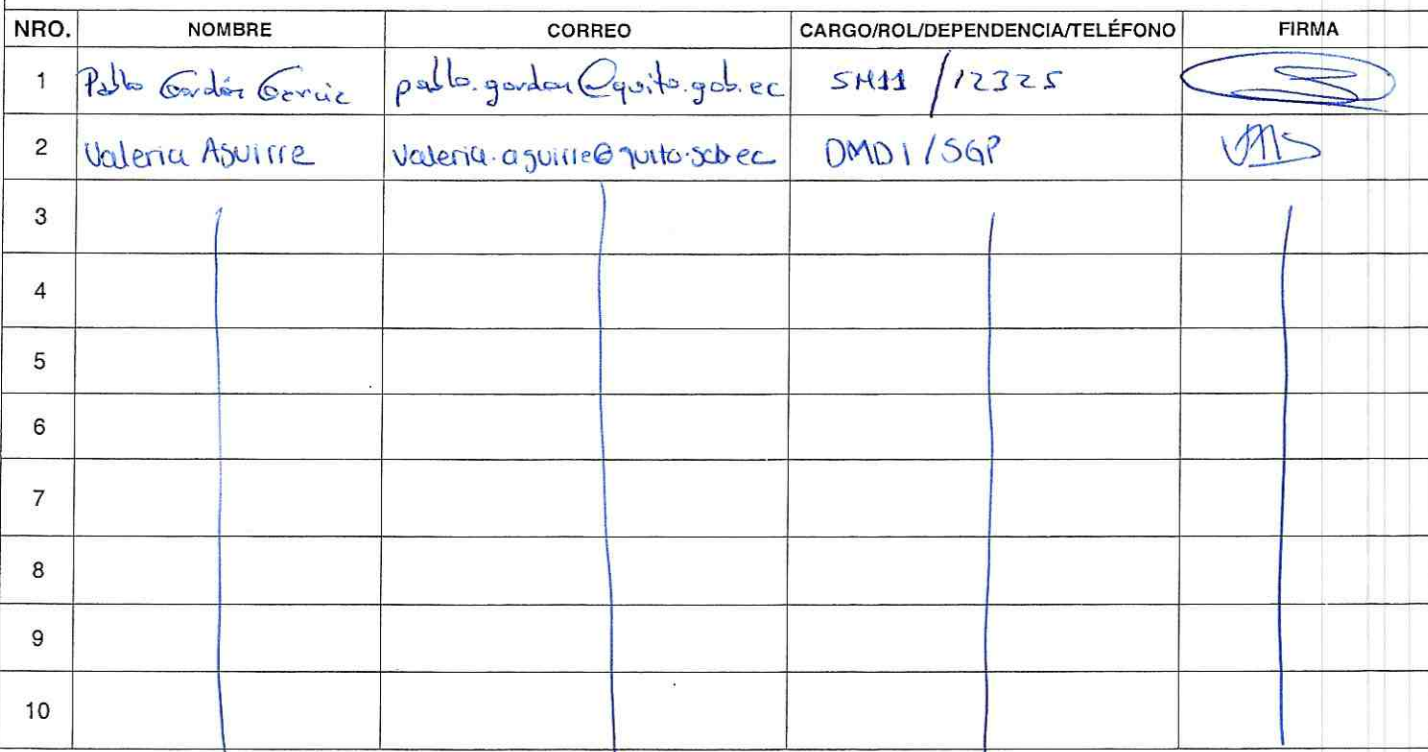 NRO. NOMBRE CORREO CARGO/ROL/DEPENDENCIA/TELÉFONO FIRMA
1 Pablo Gordón García pablo.gordon@quito.gob.ec SH11 / 12325
2 Valeria Aguirre valeria.aguirre@quito.gob.ec DMDI / SGP
3
4
5
6
7
8
9
10